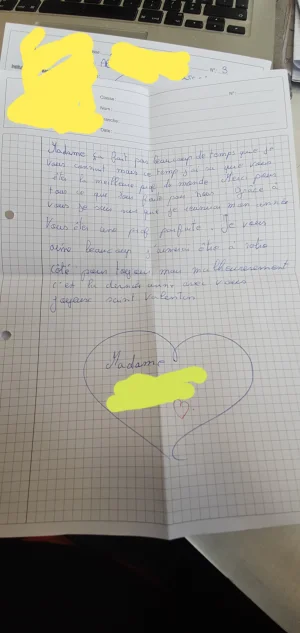 Madame ça fait pas beaucoup de temps que je
vous connait mais ce temps j'ai su que vous
êtes la meilleure prof du monde. Merci pour
tous ce que vous faite pour nous. Grâce à
vous je suis sûr que je réussirai mon année
Vous êtes une prof parfaite. Je vous
aime beaucoup, j'aimerai être à votre
côté pour toujour mais malheureusement
c'est la dernière année avec vous
joyeuse saint valentin
Madame